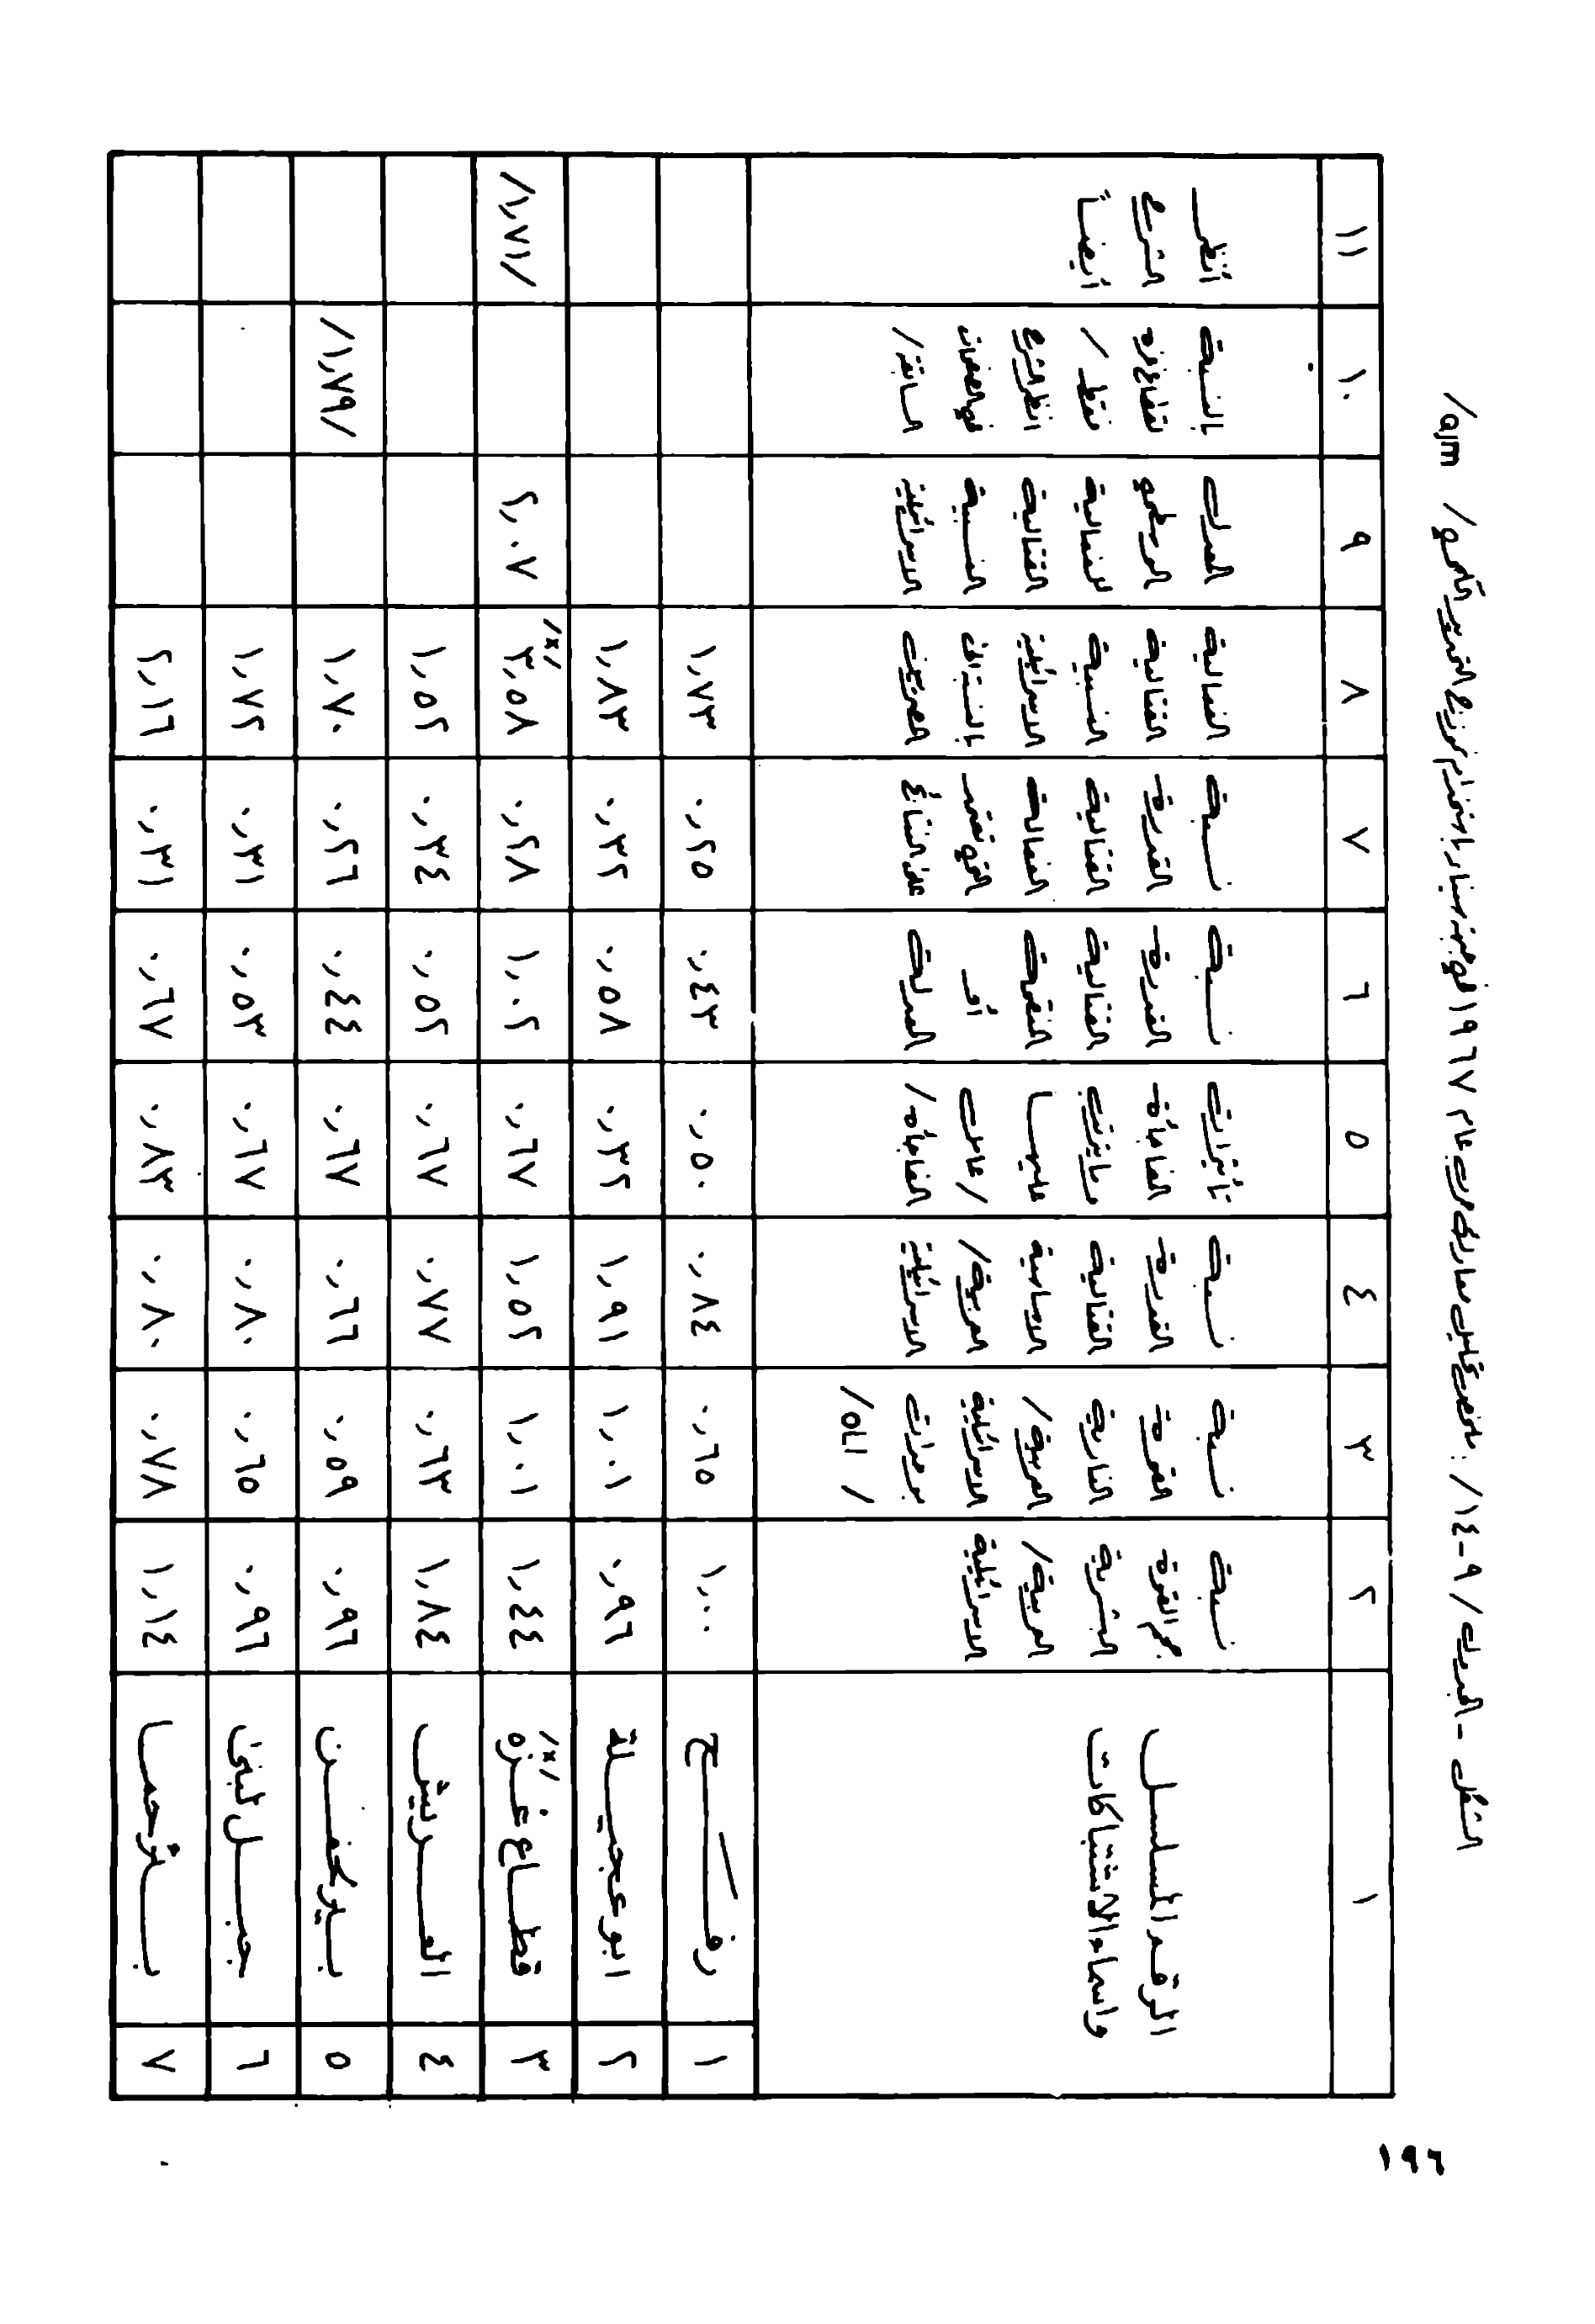 الشكل - الجدول / ٩ - ١٤ / : ملخص تحليل معارك حرب عام ١٩٦٧ في جبهة سيناء باستخدام نموذج التقدير الكمي / QJM /
١ ٢ ٣ ٤ ٥ ٦ ٧ ٨ ٩ ١٠ ١١
الرقم المسلسل
واسماء الاشتباكات
نسبة
حجم القوة
البشرية
العربية /
الاسرائيلية
نسبة
القوة
النارية
العربية /
الاسرائيلية
بوحدات
/ OLI /
نسبة
القدرة
القتالية
الاساسية
العربية /
الاسرائيلية
تأثيرات
المفاجأة
وما يترتب
عليهـــا
/ عامل
المفاجأة /
نسبة
القدرة
القتالية
المنقحة
أو
المعدلة
نسبة
القدرة
القتالية
الفعالة
التي تعتمد
على النتائج
الفعالية
القتالية
النسبية
الاسرائيلية
بالنسبة الى
المصريين
المعدل
الوسطي
للفعالية
القتالية
النسبية
الاسرائيلية
بالنسبة
لقطاع غزه
فقط /
انظر الشرح
في الصفحات
السابقة /
أنظر
الشرح
أيضاً
١ رفـــح ١,٠٠ ٠,٦٥ ٠,٨٤ ٠,٥٠ ٠,٤٣ ٠,٢٥ ١,٧٣
٢ ابو عجيـلة ٠,٩٦ ١,٠١ ١,٩١ ٠,٣٢ ٠,٥٨ ٠,٣٢ ١,٨٣
٣ قطـاع غـزه /×/ ١,٤٤ ١,٠١ ١,٥٢ ٠,٦٧ ١,٠٢ ٠,٢٨ ٣,٥٨ /×/ ٢,٠٧ /١,٧١/
٤ العـــريش ١,٨٤ ٠,٦٣ ٠,٧٧ ٠,٦٧ ٠,٥٢ ٠,٣٤ ١,٥٢
٥ بـــير لحفـــن ٠,٩٦ ٠,٥٩ ٠,٦٦ ٠,٦٧ ٠,٤٤ ٠,٢٦ ١,٧٠ /١,٧٩/
٦ جبـــل لبنى ٠,٩٦ ٠,٦٥ ٠,٨٠ ٠,٦٧ ٠,٥٣ ٠,٣١ ١,٧٢
٧ بـــئر حمـــا ١,١٤ ٠,٧٨ ٠,٨٠ ٠,٨٣ ٠,٦٧ ٠,٣١ ٢,١٦
١٩٦